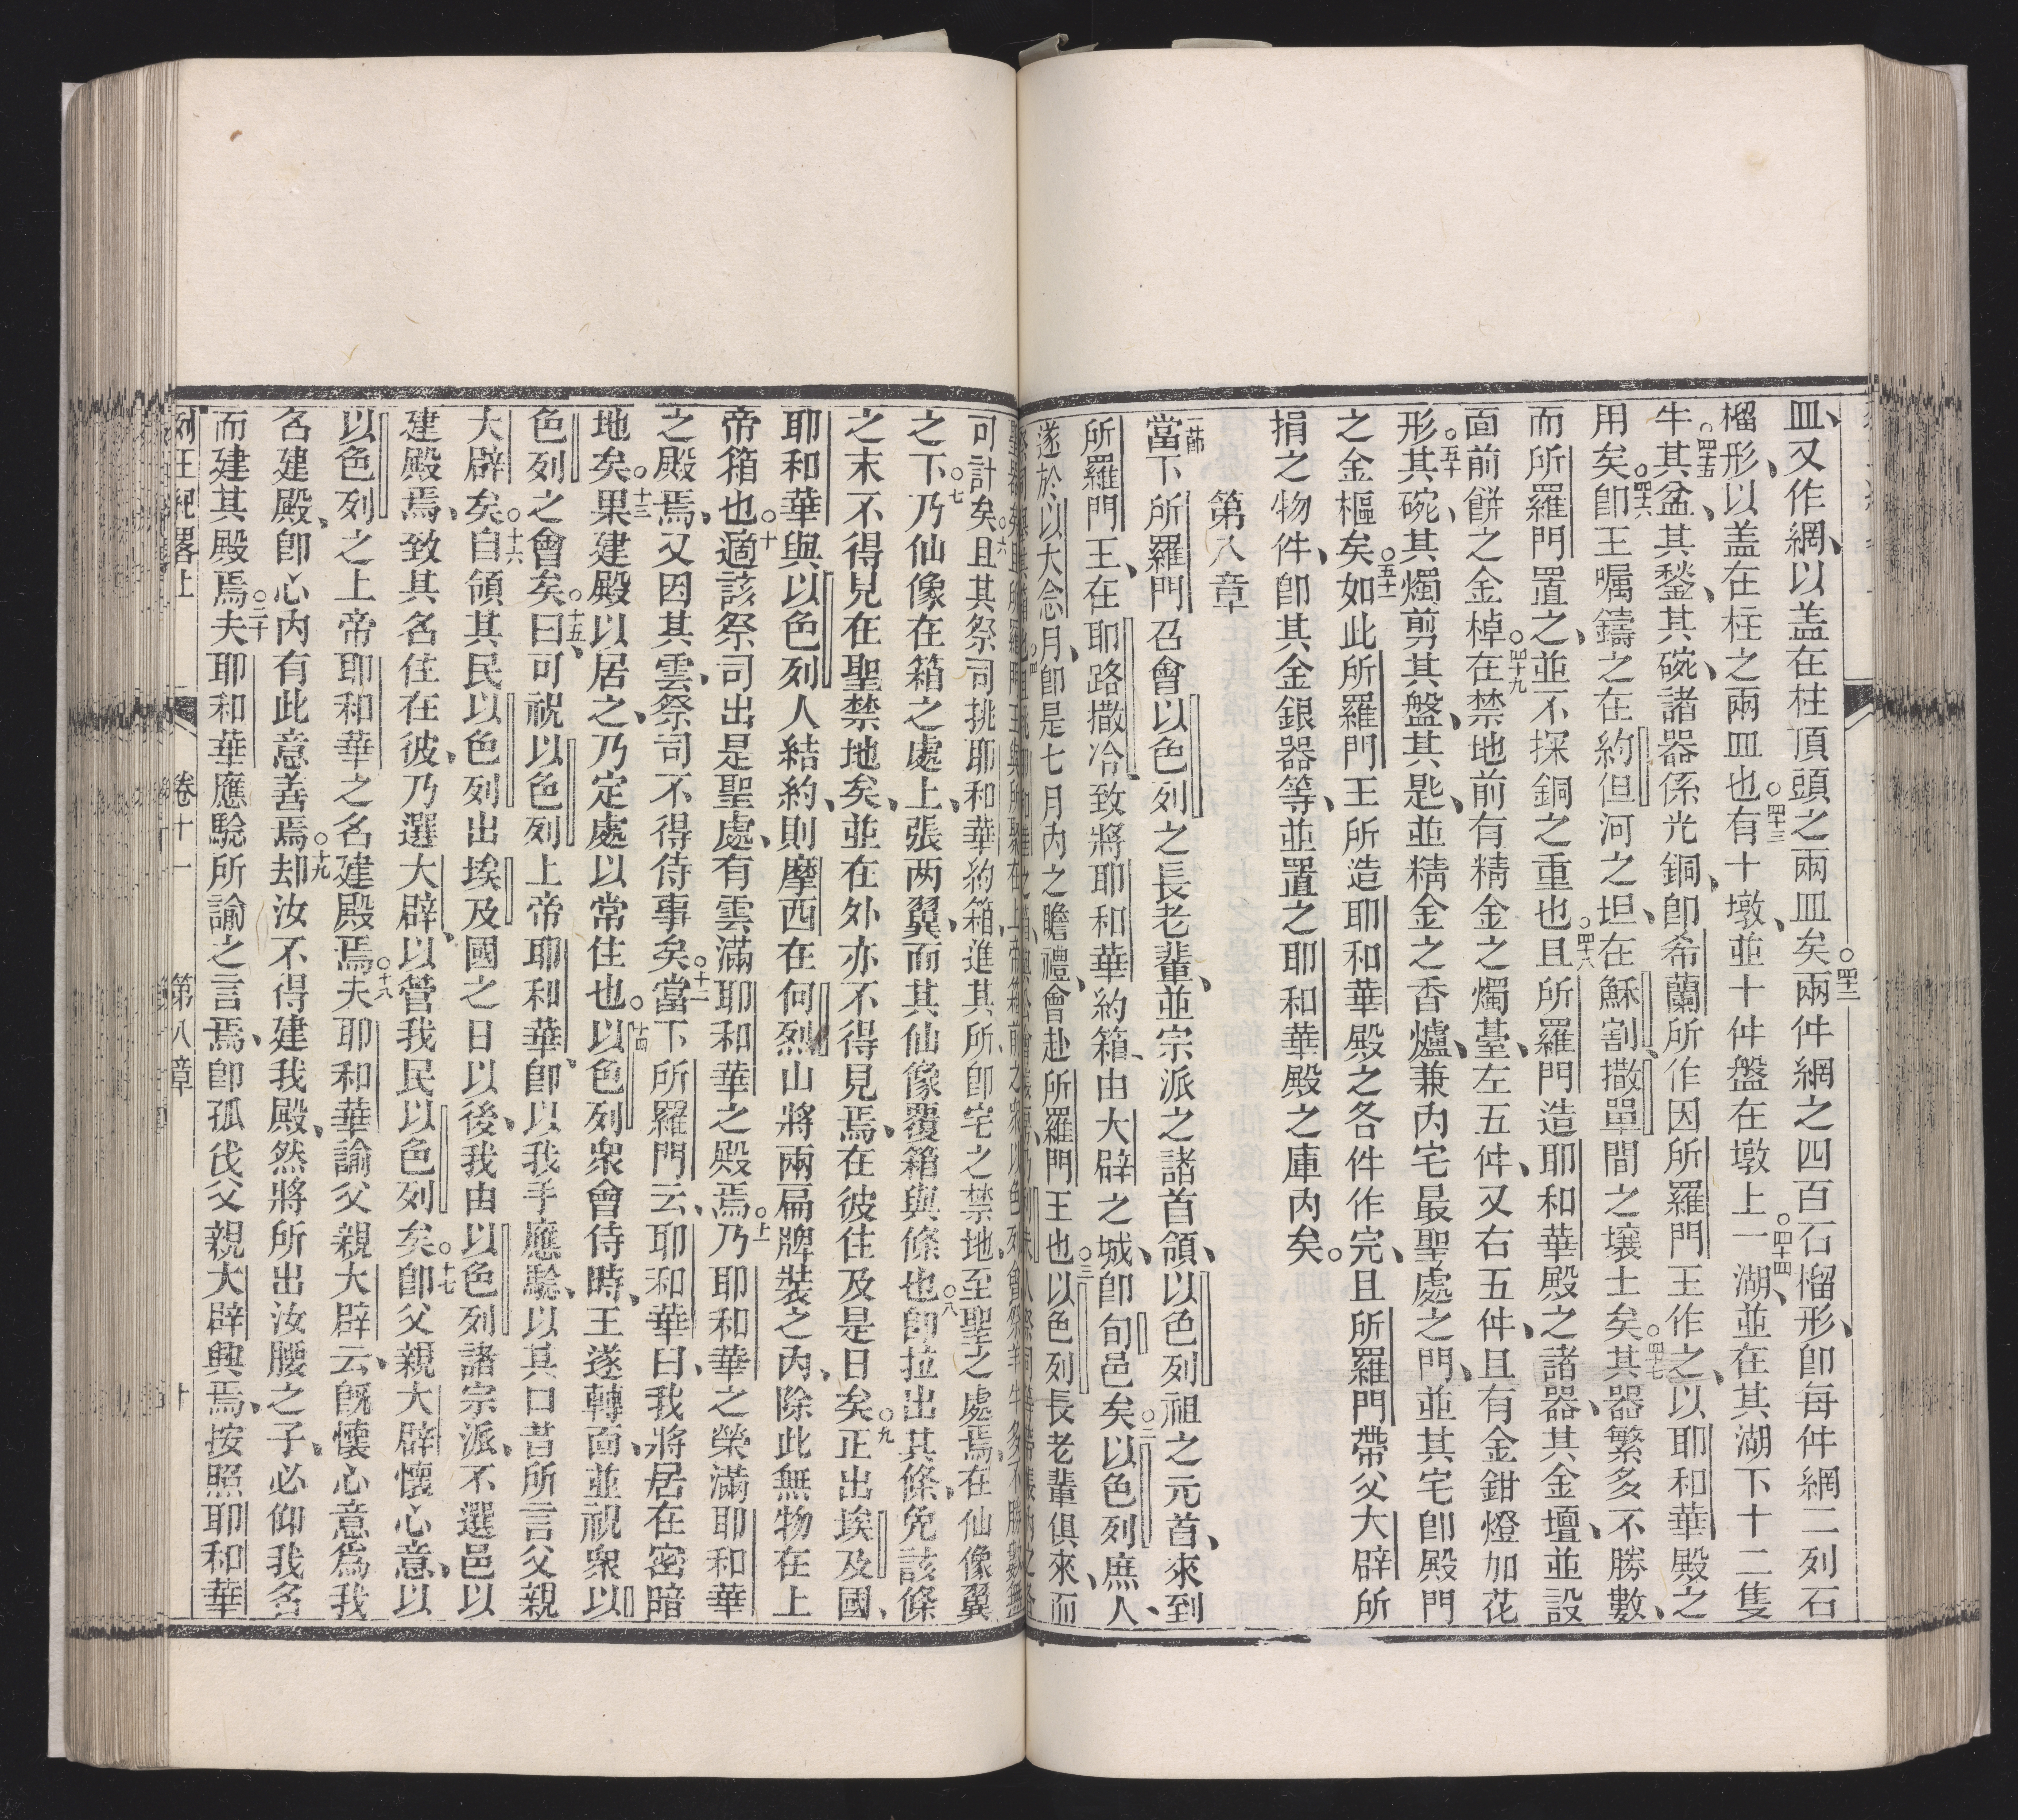 皿、又作網、以盖在柱頂頭之兩皿矣○四十二兩件網之四百石榴形、卽每件網二列石
榴形、以盖在柱之兩皿也○四十三有十墩、並十件盤在墩上○四十四一湖、並在其湖下十二隻
牛○四十五其盆、其鍫、其碗、諸器係光銅、卽希蘭所作因所羅門王作之、以耶和華殿之
用矣○四十六卽王囑鑄之在約但河之坦、在穌割、撒單間之壤土矣○四十七其器繁多不勝數、
而所羅門置之、並不探銅之重也○四十八且所羅門造耶和華殿之諸器、其金壇、並設
面前餅之金棹○四十九在禁地前有精金之燭臺、左五件、又右五件、且有金鉗燈加花
形○五十其碗、其燭剪其盤、其匙、並精金之香爐、兼內宅最聖處之門、並其宅卽殿門
之金樞矣○五十一如此所羅門王所造耶和華殿之各件作完、且所羅門帶父大辟所
捐之物件、卽其金銀器等、並置之耶和華殿之庫內矣○
第八章
一節當下所羅門召會以色列之長老輩、並宗派之諸首領、以色列祖之元首、來到
所羅門王、在耶路撒冷致將耶和華約箱、由大辟之城、卽旬邑矣○二以色列庶人、
遂於以大念月、卽是七月內之瞻禮、會赴所羅門王也○三以色列長老輩俱來、而
可計矣○六且其祭司挑耶和華約箱、進其所、卽宅之禁地、至聖之處焉、在仙像翼
之下○七乃仙像在箱之處上、張两翼、而其仙像覆箱與條也○八卽拉出其條、免該條
之末不得見在聖禁地矣、並在外亦不得見焉、在彼住及是日矣○九正出埃及國、
耶和華與以色列人結約、則摩西在何烈山將兩扁牌裝之內、除此無物在上
帝箱也○十適該祭司出是聖處、有雲滿耶和華之殿焉○十一乃耶和華之榮滿耶和華
之殿焉、又因其雲、祭司不得侍事矣○十二當下所羅門云、耶和華曰、我將居在密暗
地矣○十三果建殿以居之、乃定處以常住也○十四以色列衆會侍時、王遂轉面、並視衆以
色列之會矣○十五曰、可祝以色列上帝耶和華、卽以我手應驗、以其口昔所言父親
大辟矣○十六自領其民以色列出埃及國之日以後、我由以色列諸宗派、不選邑以
建殿焉、致其名住在彼、乃選大辟、以管我民以色列矣○十七卽父親大辟懷心意、以
以色列之上帝耶和華之名建殿焉○十八夫耶和華諭父親大辟云、旣懷心意爲我
名建殿、卽心內有此意善焉○十九却汝不得建我殿、然將所出汝腰之子、必仰我名
而建其殿焉○二十夫耶和華應驗所諭之言焉、卽孤伐父親大辟興焉、按照耶和華
列王紀畧上 卷十一 第八章 十